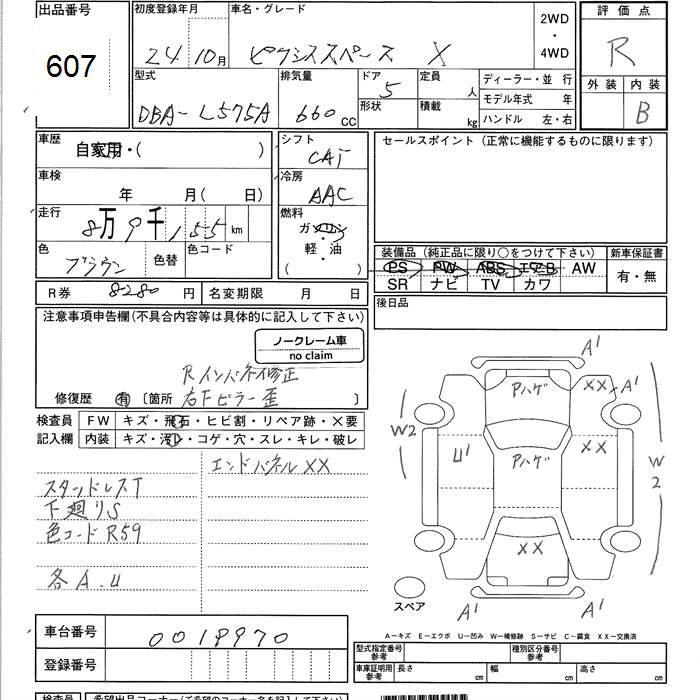 出品番号
607
初度登録年月
24 10月
車名・グレード
ピクシススペース X
2WD
・
4WD
評価点
R
外装 内装
B
型式
DBA-L575A
排気量
660 cc
ドア
5
形状
定員
人
積載
kg
ディーラー・並 行
モデル年式 年
ハンドル 左・右
車歴
自家用・( )
車検
年 月( 日)
走行
8万9千155 km
色
ブラウン
色替
色コード
シフト
CAT
冷房
AAC
燃料
ガソリン
軽・油
( )
セールスポイント(正常に機能するものに限ります)
装備品(純正品に限り○をつけて下さい)
PS PW ABS エアB AW
SR ナビ TV カワ
新車保証書
有・無
後日品
R券 8280 円
名変期限 月 日
注意事項申告欄(不具合内容等は具体的に記入して下さい)
ノークレーム車
no claim
Rインパネ修正
修復歴 有 〔箇所 右Fピラー歪 〕
検査員
記入欄
FW キズ・飛石・ヒビ割・リペア跡・×要
内装 キズ・汚レ・コゲ・穴・スレ・キレ・破レ
エンドパネルXX
スタッドレスT
下廻りS
色コードR59
各A.U
A'
Aハゲ
XX
A'
W2
U'
Aハゲ
XX
W2
XX
スペア
A'
A'
A-キズ E-エクボ U-凹み W-補修跡 S-サビ C-腐食 XX-交換済
車台番号
0018970
登録番号
型式指定番号
参考
種別区分番号
参考
車庫証明用
参考
長さ cm
幅 cm
高さ cm
検査員
希望出品コーナー(ご希望のコーナー名を記入して下さい)